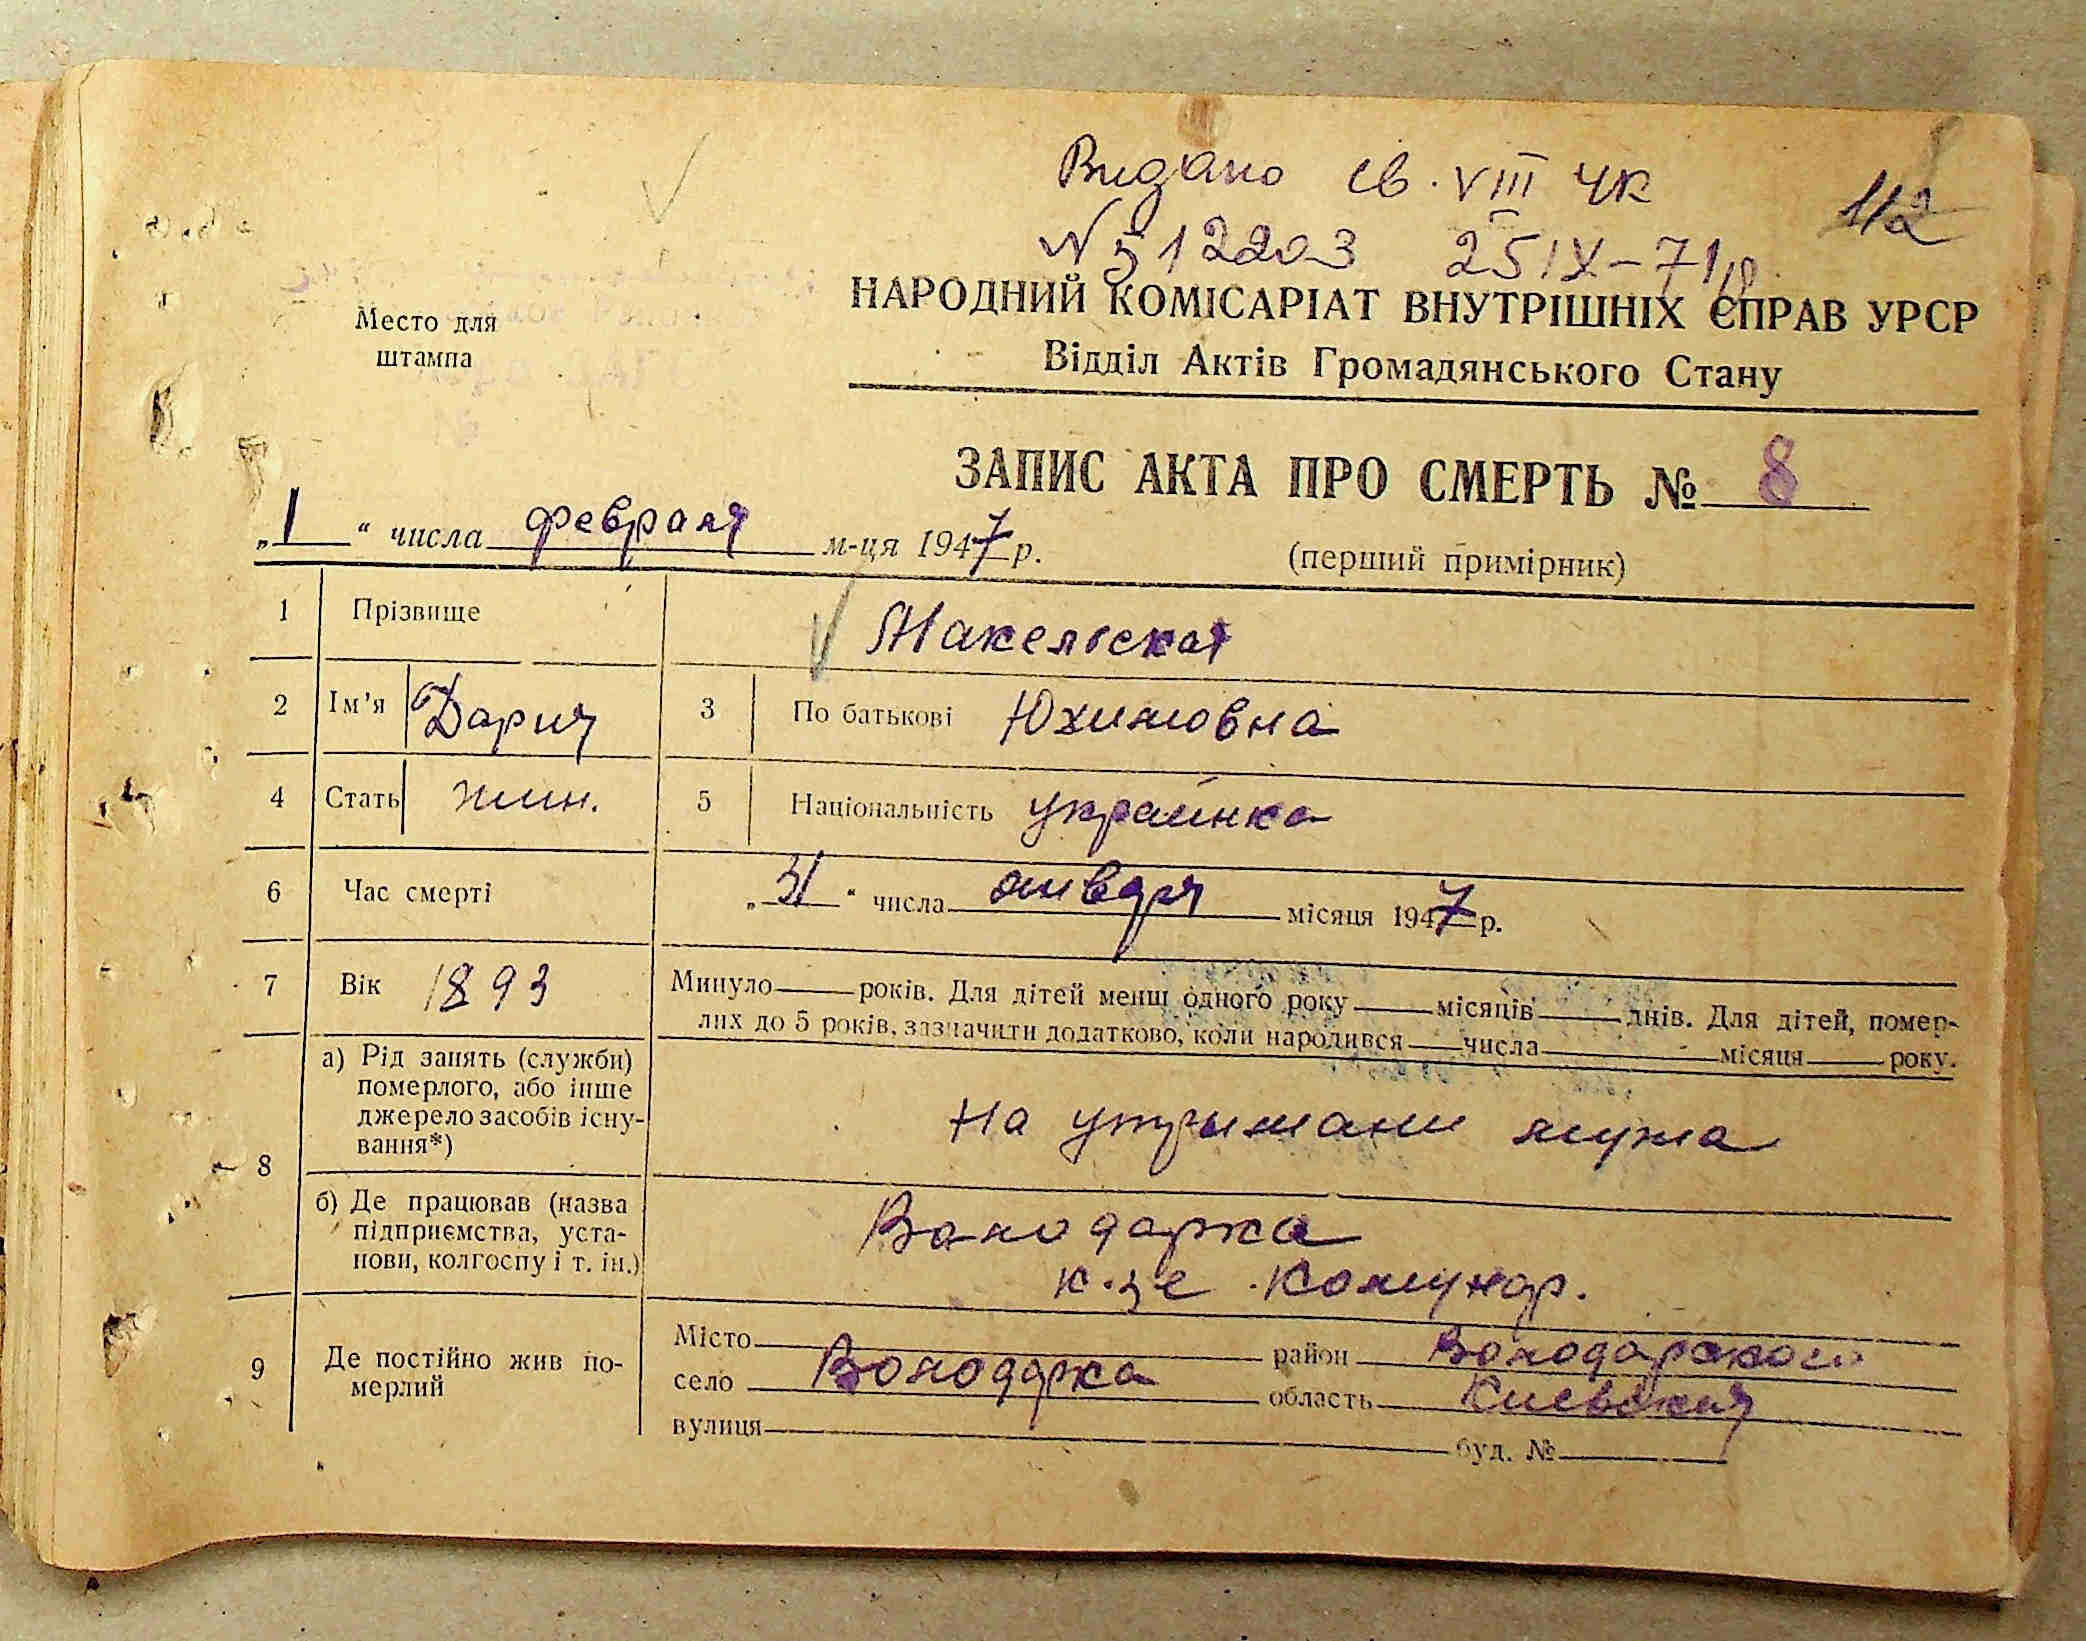 Видано св. VIII ЧК
112
N 512203 25 IX-71р
Место для
штампа
НАРОДНИЙ КОМІСАРІАТ ВНУТРІШНІХ СПРАВ УРСР
Відділ Актів Громадянського Стану
ЗАПИС АКТА ПРО СМЕРТЬ № 8
„1“ числа февраля м-ця 1947 р.
(перший примірник)
1 Прізвище Макельская
2 Ім'я Дария 3 По батькові Юхимовна
4 Стать жин. 5 Національність украинка
6 Час смерті „31“ числа января місяця 1947 р.
7 Вік 1893 Минуло років. Для дітей менш одного року місяців днів. Для дітей, помер-
лих до 5 років, зазначити додатково, коли народився числа місяця року.
8 а) Рід занять (служби)
померлого, або інше
джерело засобів існу-
вання*)
На утрымани мужа
б) Де працював (назва
підприємства, уста-
нови, колгоспу і т. ін.)
Володарка
к-зе Комунар.
9 Де постійно жив по-
мерлий
Місто район Володарского
село Володарка область Киевская
вулиця буд. №